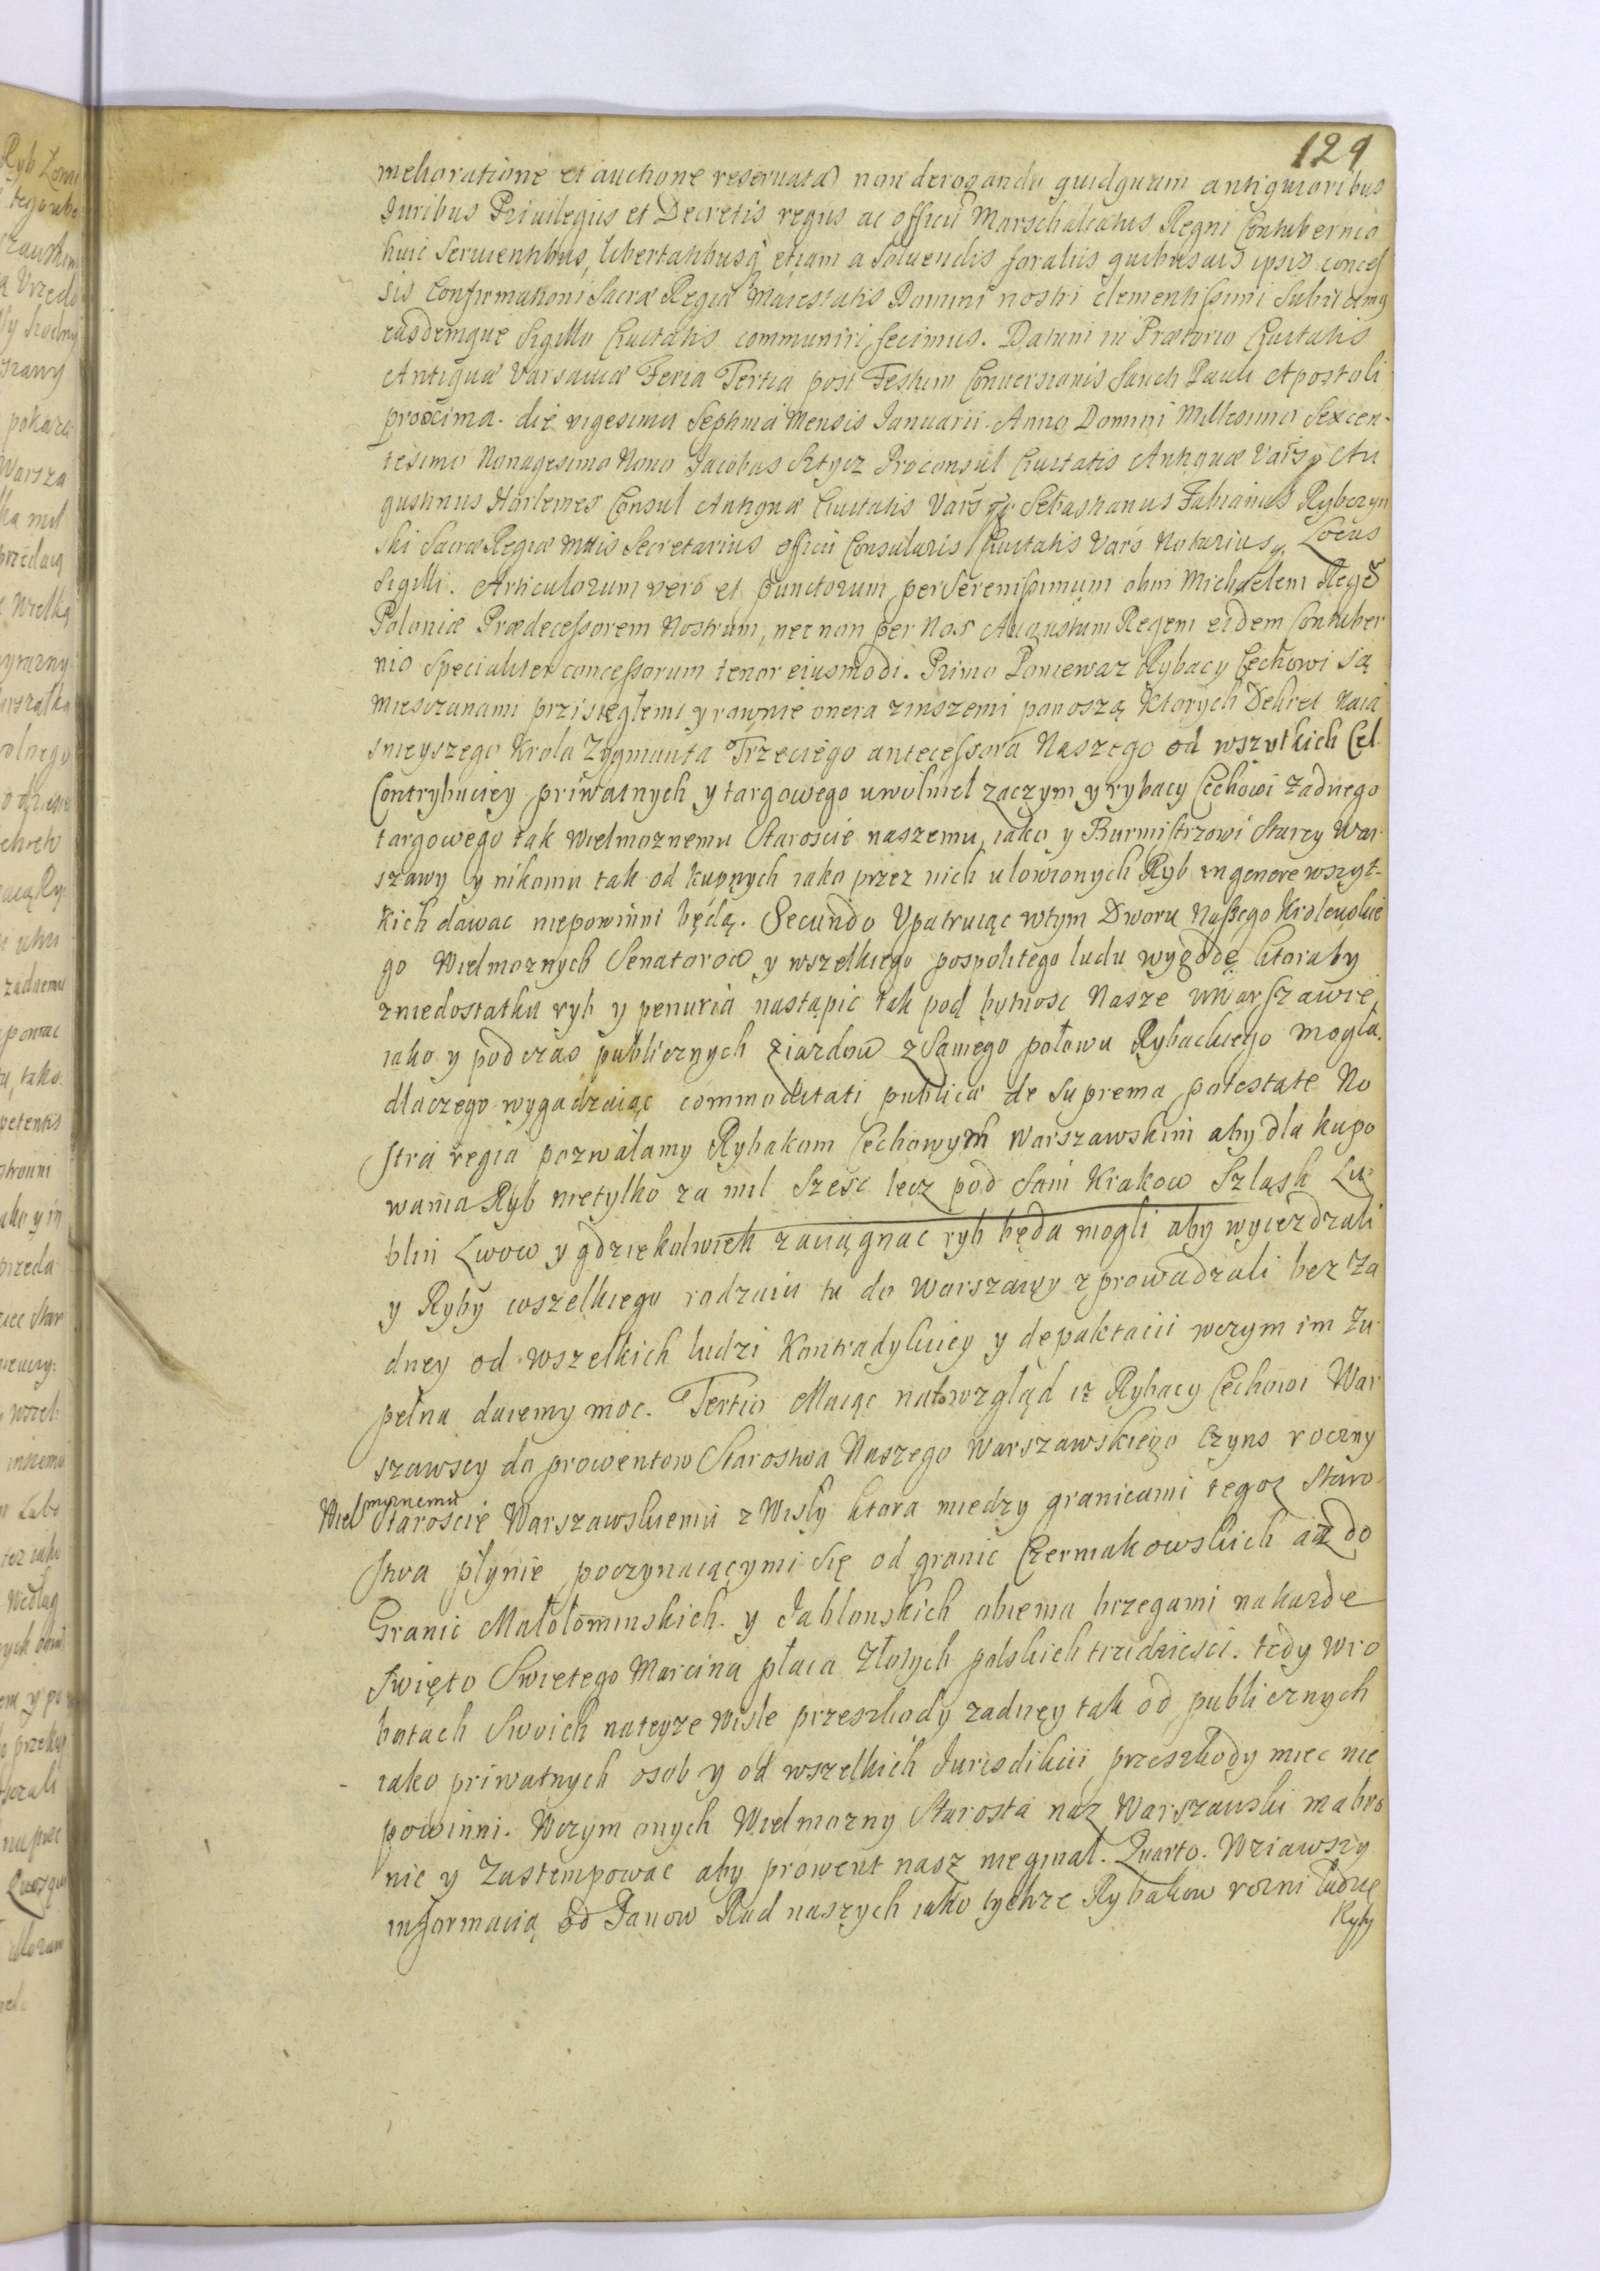 129
melioratione et auctione reseruata) non derogando quidquam antiquioribus
Iuribus Priuilegijs et Decretis regijs ac officij Marschalcatus Regni Contubernio
huic Seruientibus, libertatibusq̃ etiam a Soluendis foralijs quibusuis ipsis conces
sis Confirmationi Sacræ Regiæ Maiestatis Domini nostri clementissimi Subijcimus
easdemque Sigillo Ciuitatis communiri fecimus. Datum in Prætorio Ciuitatis
Antiquæ Varsauiæ Feria Tertia post Festum Conuersionis Sancti Pauli Apostoli
proxima. die vigesima Septima Mensis Ianuarii. Anno Domini Millesimo Sexcen-
tesimo Nonagesimo Nono Jacobus Proconsul Ciuitatis Antiquæ Vars. Au
gustinus Harlemes Consul Antiquæ Ciuitatis Vars Sebastianus Fabianus Rybczyn
ski Sacræ Regiæ Mttis Secretarius officii Consularis Ciuitatis Vars Notarius. Locus
Sigilli. Articulorum vero et punctorum per Serenissimum olim Michaelem Regẽ
Poloniæ Prædecessorem Nostrum, nec non per Nos Augustum Regem eidem Contuber
nio Specialiter concessorum tenor eiusmodi. Primo Poniewaz Rybacy Cechowi są
mieszczanami przisięgłemi y rawnie onera zinszemi ponoszą Ktorych Dekret Naia
snieyszego Krola Zygmunta Trzeciego antecessora Naszego od wszytkich Cel
Contrybuciey priwatnych y targowego uwolnieł zaczym y rybacy Cechowi zadnego
targowego tak wielmoznemu Staroscie naszemu, iako y Burmistrzowi Starey War
szawy y nikomu tak od kupnych iako przez nich ułowionych Ryb in genere wszyt-
kich dawac niepowinni będą. Secundo Upatruiąc wtym Dworu Naszego Krolewskie
go Wielmoznych Senatorow y wszelkiego pospolitego ludu wygodę ktoraby
zniedostatku ryb y penuria nastąpic tak pod bytnosc Nasze wWarszawie,
iako y podczas publicznych ziazdow zSamego połowu Rybackiego mogła.
dlaczego wygadzaiąc commoditati publicæ de Suprema potestate No
stra regia pozwalamy Rybakom Cechowym Warszawskim aby dla kupo
wania Ryb nietylko za mil Szesc lecz pod Sam Krakow Szląsk Lu-
blin Lwow y gdziekolwiek zaciągnac ryb będa mogli aby wyiezdzali
y Ryby wszelkiego rodzaiu tu do Warszawy zprowadzali bez Za
dney od wszelkich ludzi Kontradykciey y depaktacii wczym im Zu
pełna daiemy moc. Tertio Maiąc nato wzgląd iz Rybacy Cechowi War
szawscy do prowentow Starostwa Naszego Warszawskiego Czyns roczny
Wielmoznemu Staroscie Warszawskiemu z Wisły ktora miedzy granicami tegoz Staro
stwa płynie poczynaiącymi się od granic Czerniakowskich az do
Granic Małołominskich y Jabłonskich obiema brzegami na kazde
Swięto Swietego Marcina płaca Złotych polskich trzidziesci. tedy wro
botach Swoich nateyze Wisle przeszkody zadney tak od publicznych
iako priwatnych osob y od wszelkich Jurisdikcii przeszkody miec nie
powinni. Wczym onych Wielmozny Starosta nasz Warszawski ma bro
nic y Zastempowac aby prowent nasz nieginał. Quarto. Wziawszy
informacią od Panow Rad naszych iako tychze Rybakow rozni ludzie
Ryby